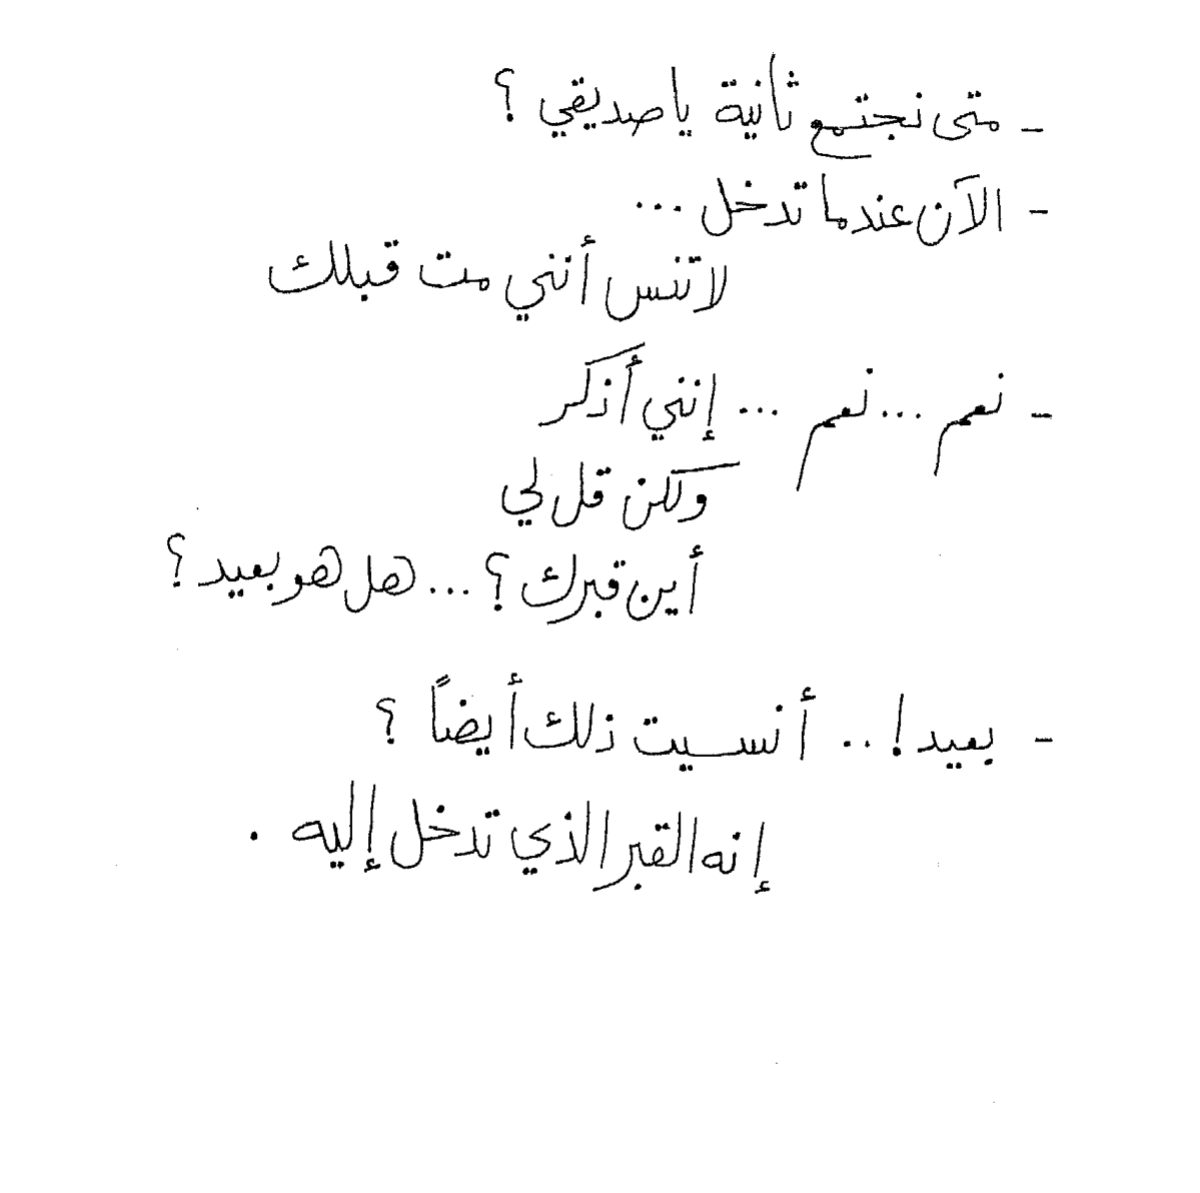 - متى نجتمع ثانية يا صديقي ؟
- الآن عندما تدخل ...
لا تنس أنني مت قبلك
- نعم ... نعم ... إنني أذكر
ولكن قل لي
أين قبرك ؟ ... هل هو بعيد ؟
- بعيد ! .. أنسيت ذلك أيضاً ؟
إنه القبر الذي تدخل إليه .